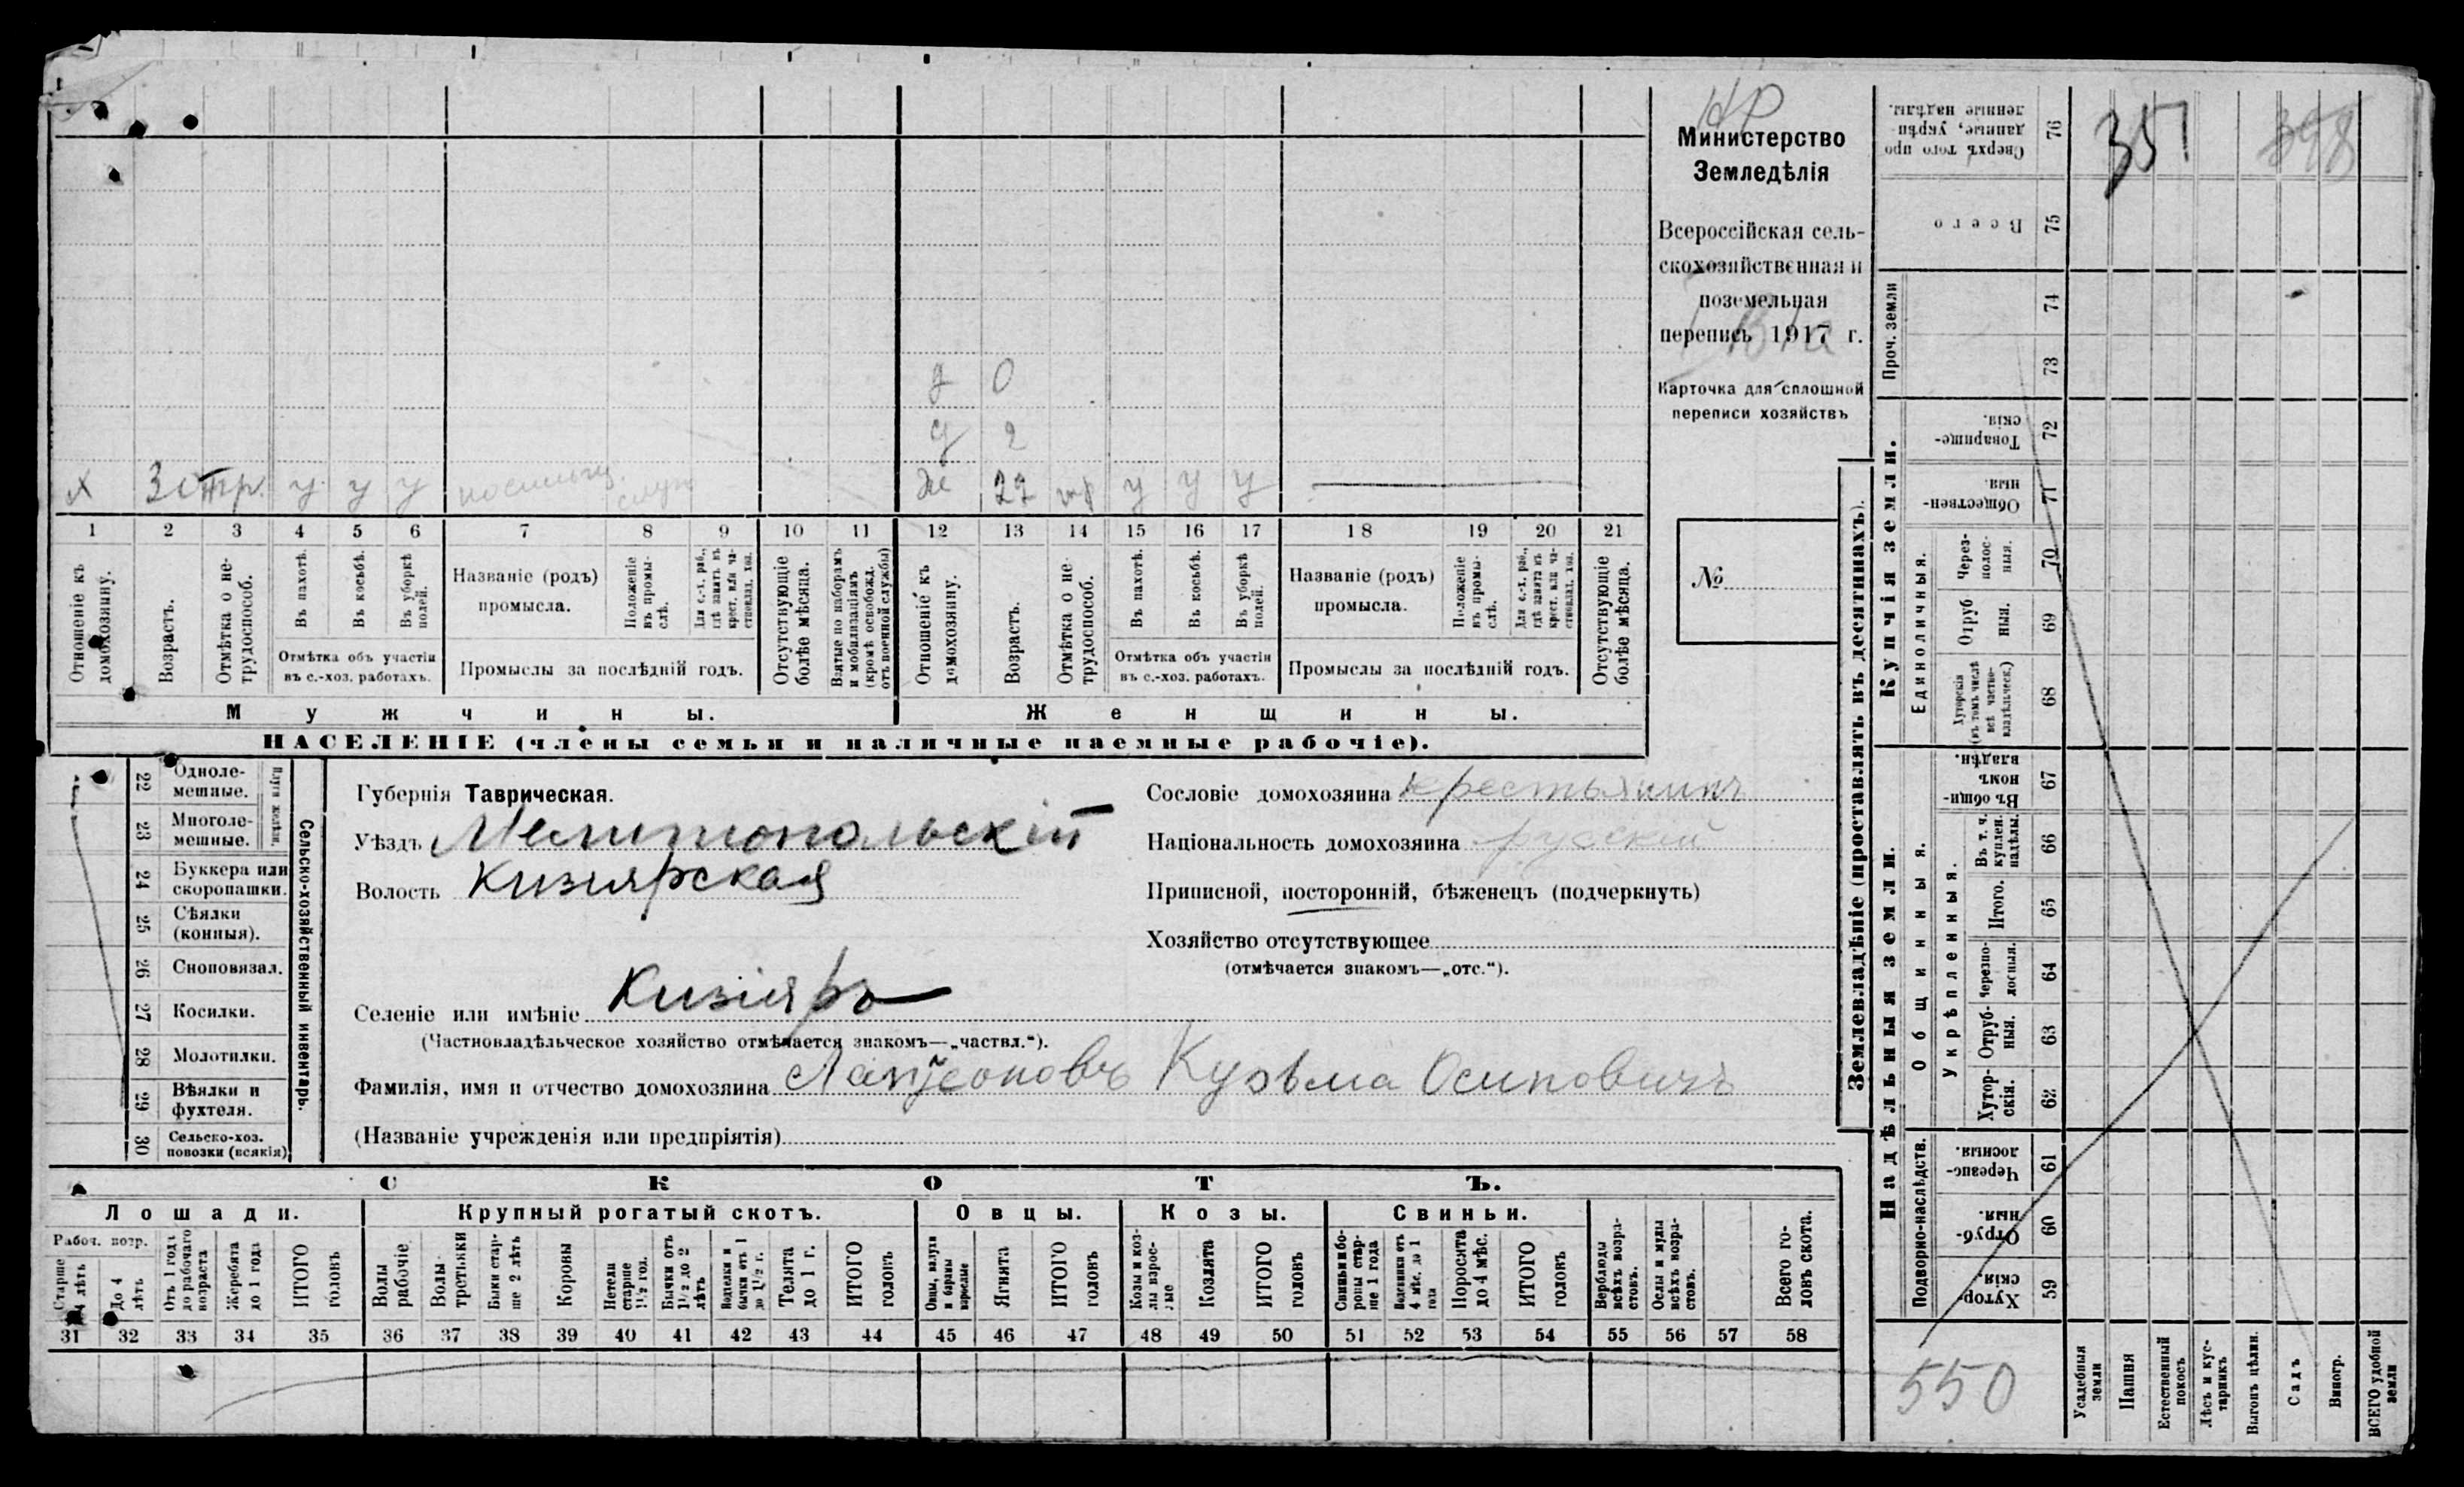 НР
Министерство
Земледѣлія
Всероссійская сель-
скохозяйственная и
поземельная
перепись 1917 г.
Карточка для сплошной
переписи хозяйствъ
№
д 0
д 2
х 30 тр. у у у
ж 27 нр у у у
1 2 3 4 5 6 7 8 9 10 11 12 13 14 15 16 17 18 19 20 21
Отношеніе къ домохозяину.
Возрастъ.
Отмѣтка о не-трудоспособ.
Въ пахотѣ.
Въ косьбѣ.
Въ уборкѣ полей.
Отмѣтка объ участіи
въ с.-хоз. работахъ.
Названіе (родъ)
промысла.
Положеніе въ промы-слѣ.
Для с.-х. раб., гдѣ занятъ въ крест. или ча-стновлад. хоз.
Промыслы за послѣдній годъ.
Отсутствующіе болѣе мѣсяца.
Взятые по наборамъ и мобилизаціямъ (кромѣ освобожд. отъ военной службы)
Отношеніе къ домохозяину.
Возрастъ.
Отмѣтка о не-трудоспособ.
Въ пахотѣ.
Въ косьбѣ.
Въ уборкѣ полей.
Отмѣтка объ участіи
въ с.-хоз. работахъ.
Названіе (родъ)
промысла.
Положеніе въ промы-слѣ.
Для с.-х. раб., гдѣ занята въ крест. или ча-стновлад. хоз.
Промыслы за послѣдній годъ.
Отсутствующіе болѣе мѣсяца.
Мужчины.
Женщины.
НАСЕЛЕНІЕ (члены семьи и наличные наемные рабочіе).
22 Одноле-мешные.
23 Многоле-мешные.
Плуги желѣзн.
24 Буккера или скоропашки.
25 Сѣялки (конныя).
26 Сноповязал.
27 Косилки.
28 Молотилки.
29 Вѣялки и фухтеля.
30 Сельско-хоз. повозки (всякія)
Сельско-хозяйственный инвентарь.
Губернія Таврическая.
Уѣздъ Мелитопольскій
Волость Кизиярская
Селеніе или имѣніе Кизіяръ
(Частновладѣльческое хозяйство отмѣчается знакомъ—„частвл.“).
Фамилія, имя и отчество домохозяина Кузьма Осиповичъ
(Названіе учрежденія или предпріятія)
Сословіе домохозяина крестьянинъ
Національность домохозяина русскій
Приписной, посторонній, бѣженецъ (подчеркнуть)
Хозяйство отсутствующее
(отмѣчается знакомъ—„отс.“).
СКОТЪ.
Лошади.
Крупный рогатый скотъ.
Овцы.
Козы.
Свиньи.
Рабоч. возр.
Старше 4 лѣтъ
До 4 лѣтъ
Отъ 1 года до рабочаго возраста
Жеребята до 1 года
ИТОГО головъ
Волы рабочіе
Волы третьяки
Быки стар-ше 2 лѣтъ
Коровы
Нетели старше 1½ год.
Бычки отъ 1½ до 2 лѣтъ
Воделки и бычки отъ 1 до 1½ г.
Телята до 1 г.
ИТОГО головъ
Овцы, валухи и бараны взрослые
Ягнята
ИТОГО головъ
Козы и коз-лы взрос-лые
Козлята
ИТОГО головъ
Свиньи и бо-ровы стар-ше 1 года
Подсвинки отъ 4 мѣс. до 1 года
Поросята до 4 мѣс.
ИТОГО головъ
Верблюды всѣхъ возра-стовъ.
Ослы и мулы всѣхъ возра-стовъ.
Всего го-ловъ скота.
31 32 33 34 35 36 37 38 39 40 41 42 43 44 45 46 47 48 49 50 51 52 53 54 55 56 57 58
Землевладѣніе (проставлять въ десятинахъ).
Надѣльныя земли.
Купчія земли.
Проч. земли
Подворно-наслѣдств.
Общинныя.
Укрѣпленныя.
Единоличныя.
Сверхъ того про-данные, укрѣп-ленные надѣлы. 76
Всего 75
74
73
Товарище-скія. 72
Обществен-ныя. 71
Через-полос-ныя. 70
Отруб-ныя. 69
Хуторскія (въ томъ числѣ всѣ частно-владѣльческ.) 68
Въ общи-номъ владѣн. 67
Въ т. ч. куплен. надѣлы. 66
Итого. 65
Черезпо-лосныя. 64
Отруб-ныя. 63
Хутор-скія. 62
Черезпо-лосныя. 61
Отруб-ныя. 60
Хутор-скія. 59
Усадебныя земли
Пашня
Естественный покосъ
Лѣсъ и кус-тарникъ
Выгонъ цѣлин.
Садъ
Виногр.
ВСЕГО удобной земли
351
398
550